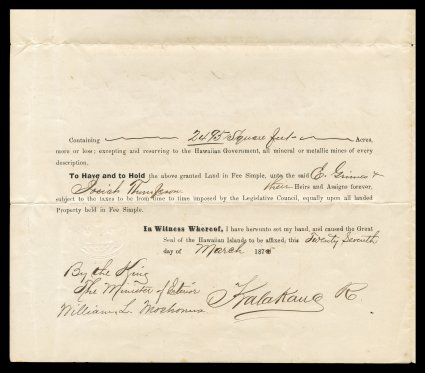 Containing 2495 Square feet Acres,
more or less; excepting and reserving to the Hawaiian Government, all mineral or metallic mines of every
description.
To Have and to Hold the above granted Land in Fee Simple, unto the said E. Grimes &
Josiah Thompson their Heirs and Assigns forever,
subject to the taxes to be from time to time imposed by the Legislative Council, equally upon all landed
Property held in Fee Simple.
In Witness Whereof, I have hereunto set my hand, and caused the Great
Seal of the Hawaiian Islands to be affixed, this Twenty Seventh
day of March 187
By the King
The Minister of Interior
William L. Moehonua
Kalakaua R.